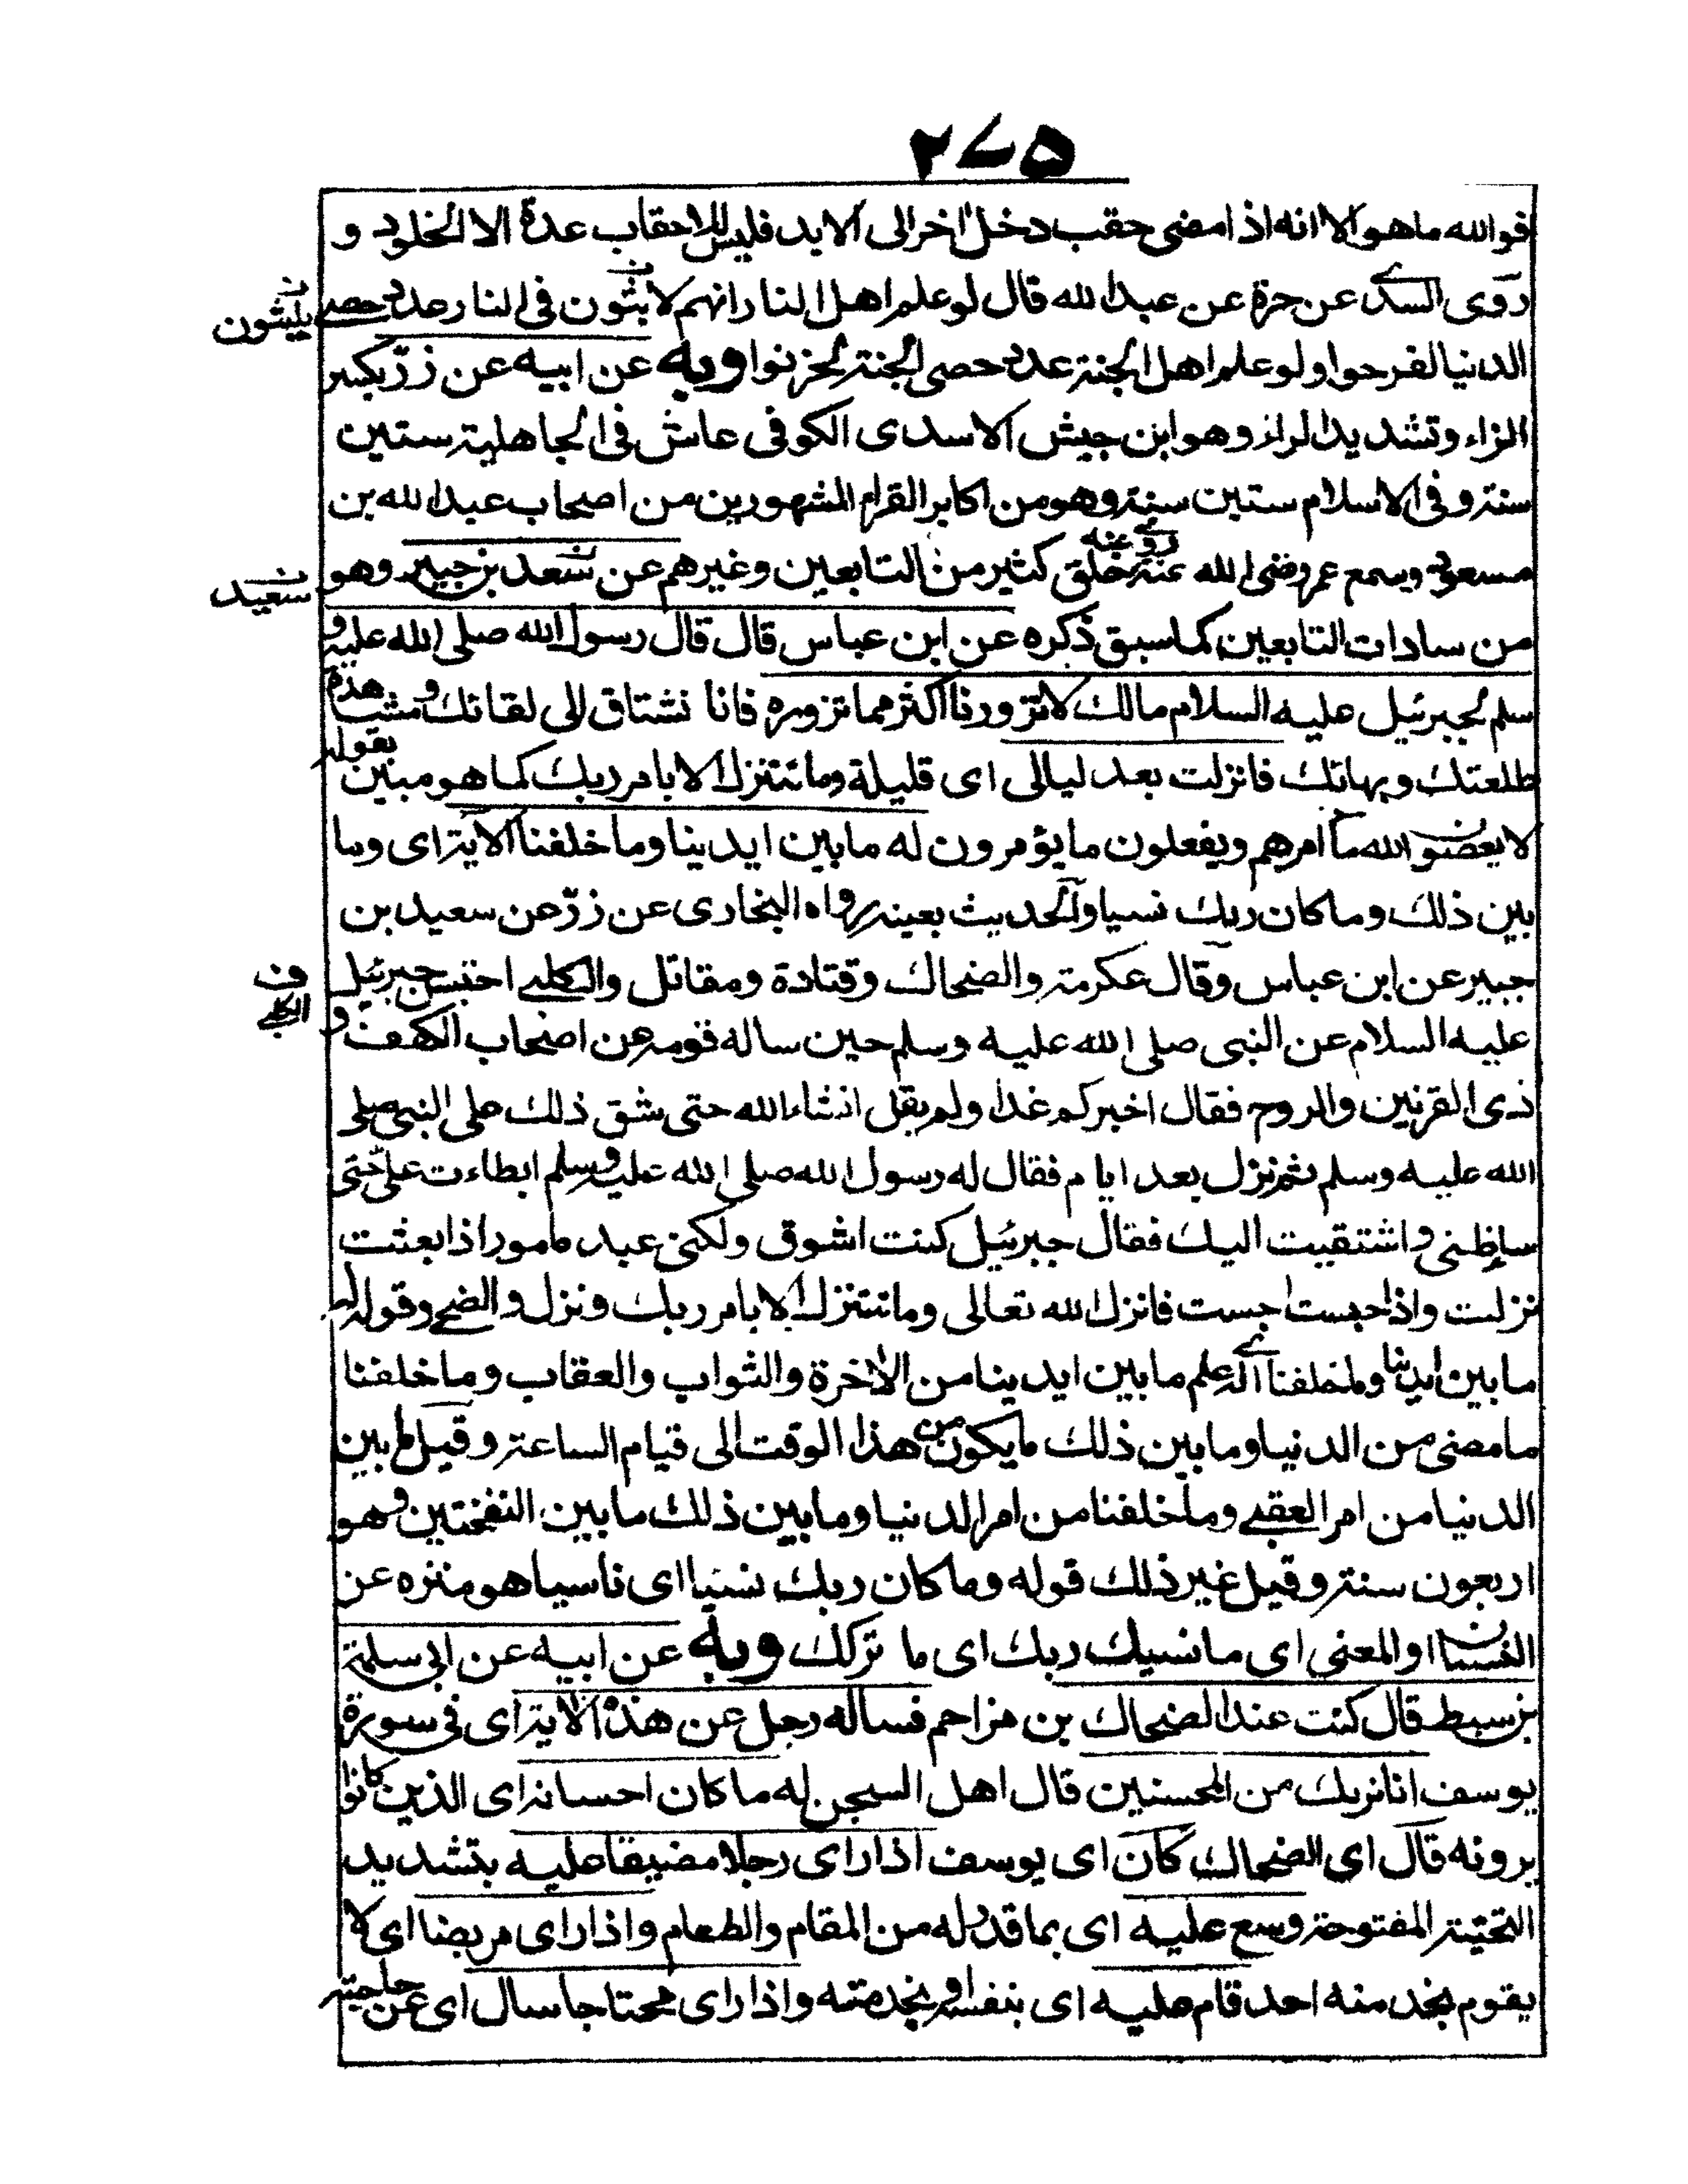 ٢٧٥
فوالله ما هو الا انه اذا مضى حقب دخل اخر الى الابد فليس للاحقاب عدة الا الخلود و
روى السدى عن مرة عن عبد الله قال لو علم اهل النار انهم لا يبثون فى النار عدد حصى
يلبثون
الدنيا لفرحوا ولو علم اهل الجنة عدد حصى الجنة لحزنوا وبه عن ابيه عن زرّ بكسر
الزاء وتشديد الراء وهو ابن حبيش الاسدى الكوفى عاش فى الجاهلية ستين
سنة وفى الاسلام ستين سنة وهو من اكابر القراء المشهورين من اصحاب عبد الله بن
مسعود وسمع عمر رضى الله عنه روى عنه خلق كثير من التابعين وغيرهم عن سعد بن جبير وهو
سعيد
من سادات التابعين كما سبق ذكره عن ابن عباس قال قال رسول الله صلى الله عليه و
سلم لجبرئيل عليه السلام مالك لا تزورنا اكثر مما تزوره فانا نشتاق الى لقائك ومشاهدة
طلعتك وبهائك فانزلت بعد ليالى اى قليلة وما نتنزل الا بامر ربك كما هو مبين بقوله
لا يعصون الله ما امرهم ويفعلون ما يؤمرون له ما بين ايدينا وما خلفنا الآية اى وما
بين ذلك وما كان ربك نسيا والحديث بعينه رواه البخارى عن زرّ عن سعيد بن
جبير عن ابن عباس وقال عكرمة والضحاك وقتادة ومقاتل والكلبى احتبس جبرئيل
ف الكلبى
عليه السلام عن النبى صلى الله عليه وسلم حين ساله قومه عن اصحاب الكهف و
ذى القرنين والروح فقال اخبركم غدا ولم يقل انشاء الله حتى شق ذلك على النبى صلى
الله عليه وسلم ثم نزل بعد ايام فقال له رسول الله صلى الله عليه وسلم ابطاءت علىّ حتى
ساء ظنى واشتقيت اليك فقال جبرئيل كنت اشوق ولكنى عبد مامور اذا بعثت
نزلت واذا حبست احبست فانزل الله تعالى وما نتنزل الا بامر ربك ونزل والضحى وقوله له
ما بين ايدينا وما خلفنا اى له علم ما بين ايدينا من الاخرة والثواب والعقاب وما خلفنا
ما مضى من الدنيا وما بين ذلك ما يكون من هذا الوقت الى قيام الساعة وقيل ما بين
الدنيا من امر العقبى وما خلفنا من امر الدنيا وما بين ذلك ما بين النفختين وهو
اربعون سنة وقيل غير ذلك قوله وما كان ربك نسيا اى ناسيا هو منزه عن
النسيان او المعنى اى ما نسيك ربك اى ما تركك وبه عن ابيه عن ابى سلمة
بن سبيط قال كنت عند الضحاك بن مزاحم فساله رجل عن هذه الاية اى فى سورة
يوسف انا نريك من المحسنين قال اهل السجن له ما كان احسانه اى الذين كانوا
يرونه قال اى الضحاك كان اى يوسف اذا راى رجلا مضيقا عليه بتشديد
التحتية المفتوحة وسع عليه اى بما قدر له من المقام والطعام واذا راى مريضا اى لا
يقوم بخدمته احد قام عليه اى بنفسه او بخدمته واذا راى محتاجا سال اى عن حاجته